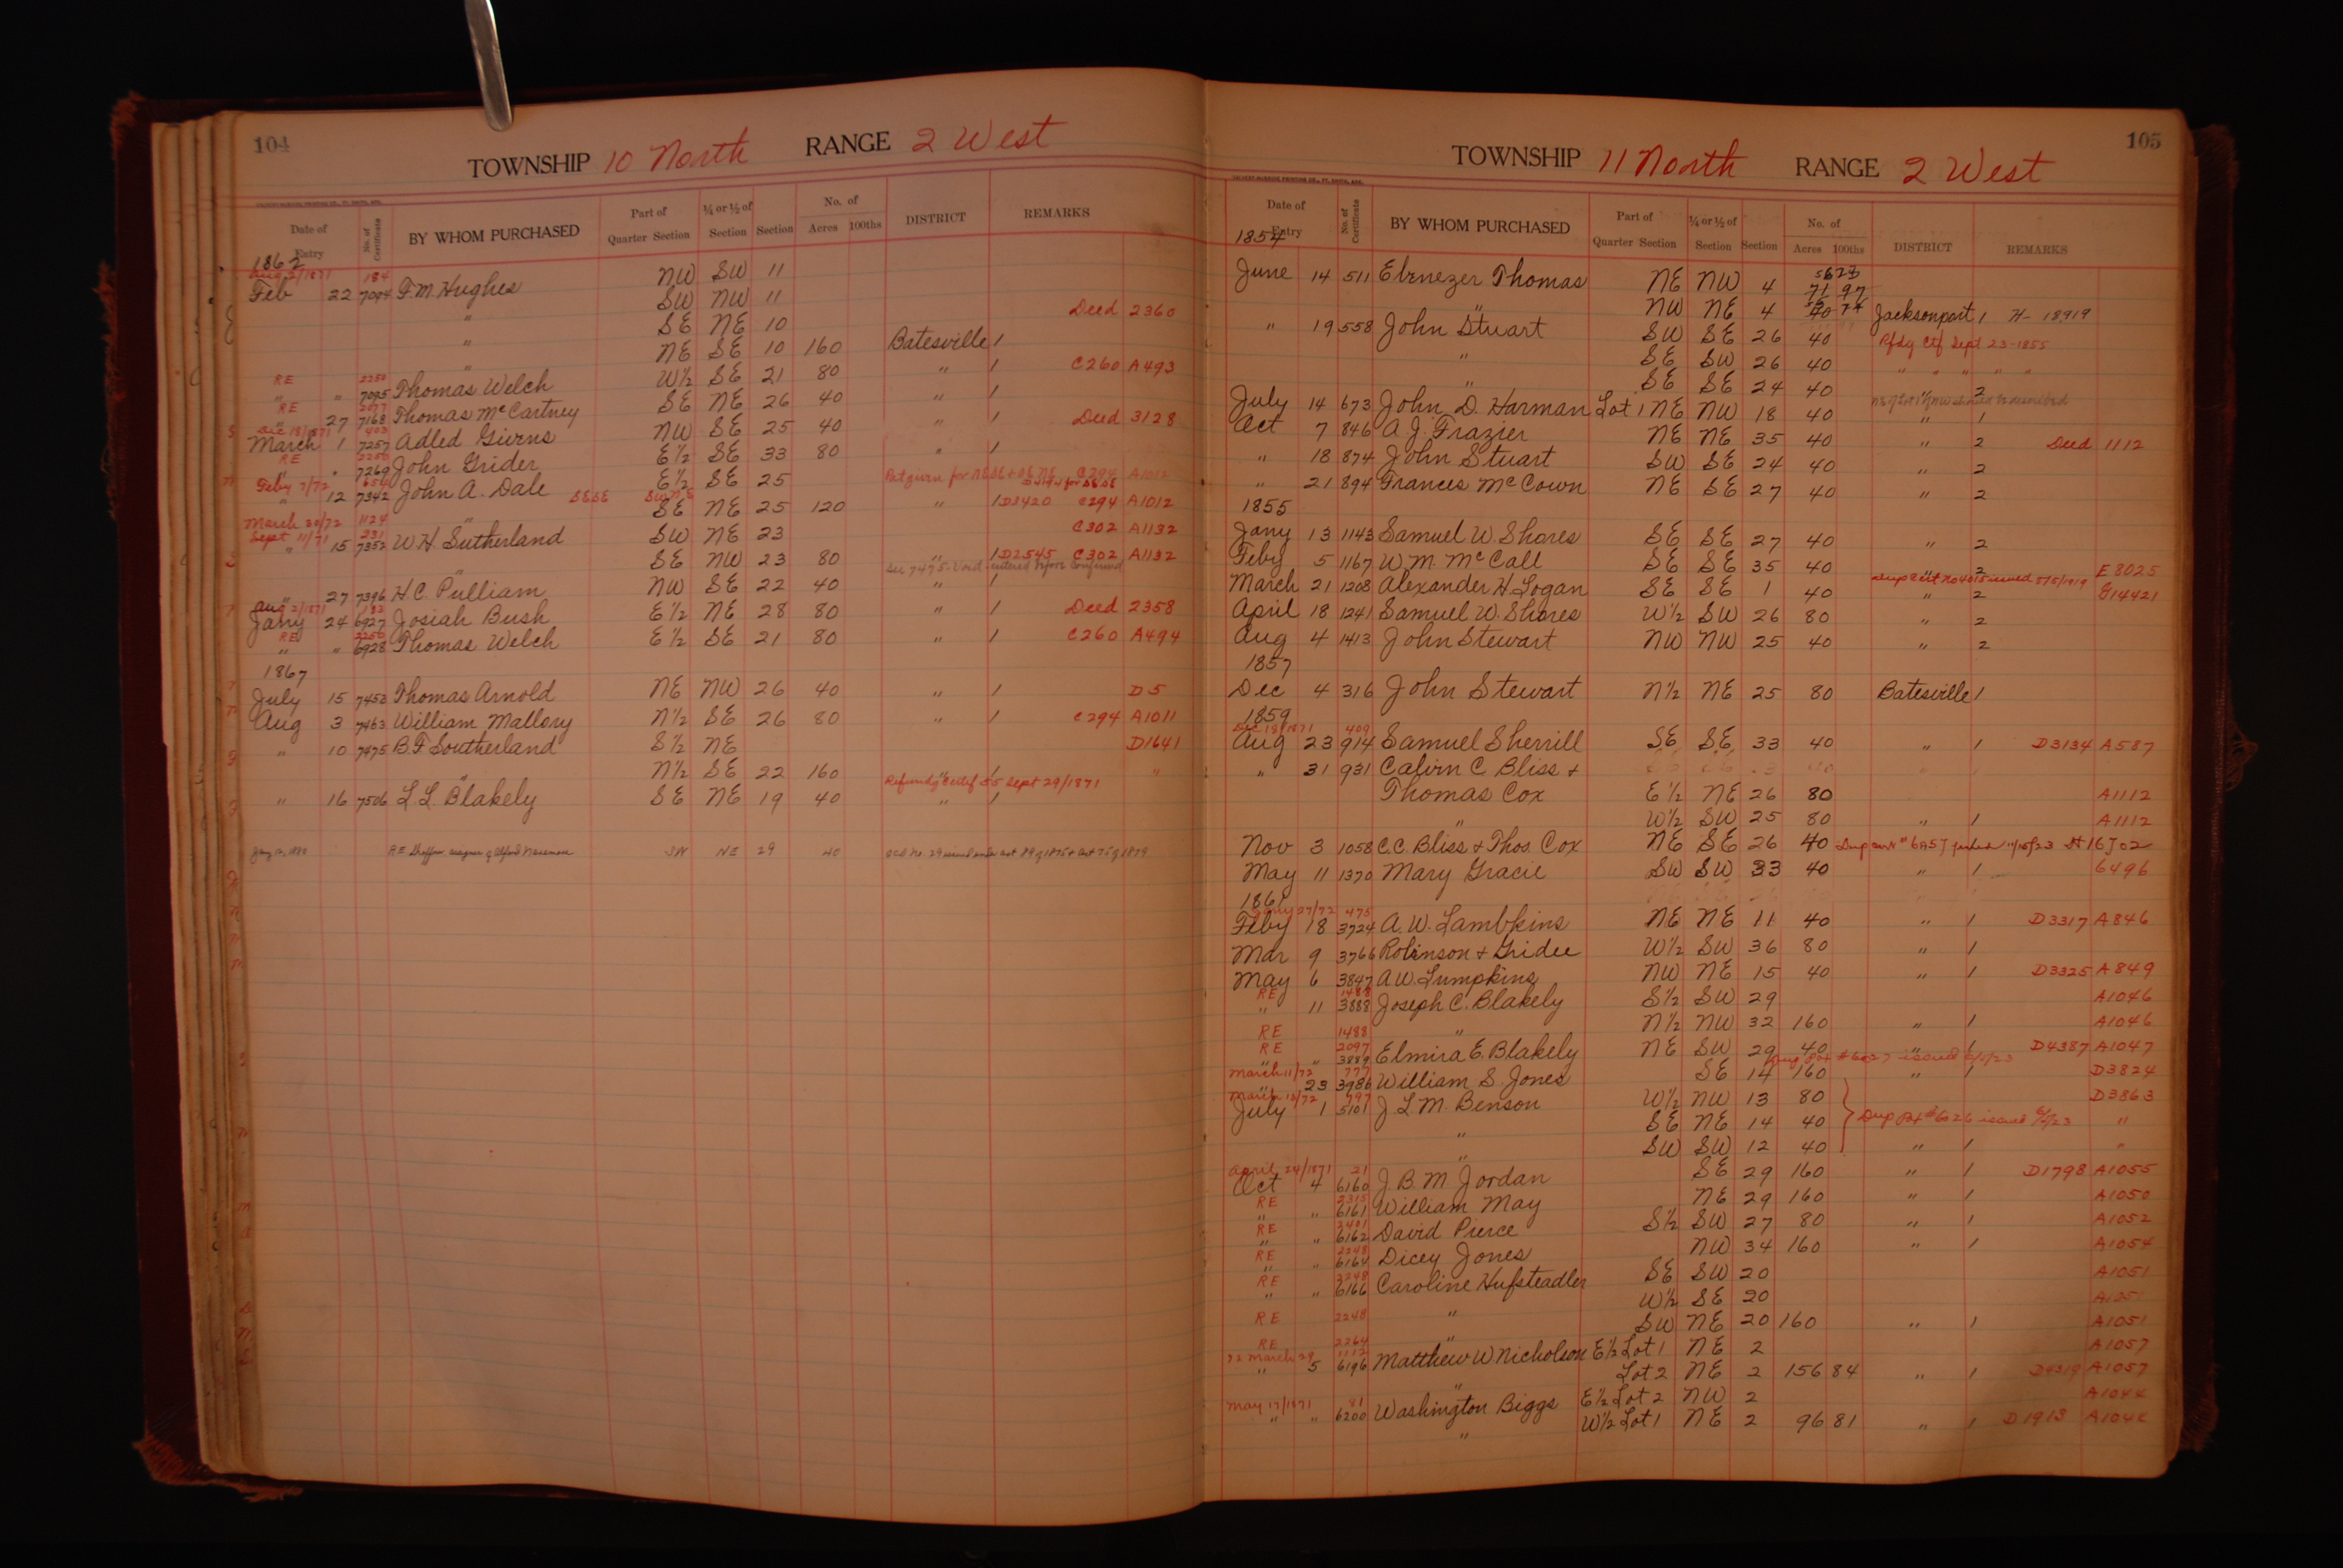 104
TOWNSHIP 10 North RANGE 2 West
Date of Entry No. of Certificate BY WHOM PURCHASED Part of Quarter Section ¼ or ½ of Section Section No. of Acres 100ths DISTRICT REMARKS
1862
Aug 2/1871 184
Feb 22 7094 F. M. Hughes NW SW 11
" SW NW 11 Deed 2360
" SE NE 10
" NE SE 10 160 Batesville 1
RE 2250
" " 7095 Thomas Welch W½ SE 21 80 " 1 C260 A493
RE 2077
" 27 7168 Thomas McCartney SE NE 26 40 " 1
Dec 18/1871 403
March 1 7257 Adled Givens NW SE 25 40 " 1 Deed 3128
RE 2250
" " 7269 John Grider E½ SE 33 80 " 1
Feby 7/72 654
" 12 7342 John A. Dale E½ SE 25 C294 A1012
SESE SW NE
" SE NE 25 120 " 1 D3420 C294 A1012
March 30/72 1124
Sept 11/71 231
" 15 7352 W. H. Sutherland SW NE 23 C302 A1132
" SE NW 23 80 " 1 D2545 C302 A1132
See 7475 - Void - entered before confirmed
" 27 7396 H C. Pulliam NW SE 22 40 " 1
Aug 2/1871 182
Jany 24 6927 Josiah Bush E½ NE 28 80 " 1 Deed 2358
RE 2250
" " 6928 Thomas Welch E½ SE 21 80 " 1 C260 A494
1867
July 15 7453 Thomas Arnold NE NW 26 40 " 1 D5
Aug 3 7463 William Mallory N½ SE 26 80 " 1 C294 A1011
" 10 7475 B. F Southerland S½ NE D1641
" N½ SE 22 160 " 1 "
Refundg Certif 55 Sept 29/1871
" 16 7506 L. L. Blakely SE NE 19 40 " 1
SW NE 29 40
105
TOWNSHIP 11 North RANGE 2 West
Date of Entry No. of Certificate BY WHOM PURCHASED Part of Quarter Section ¼ or ½ of Section Section No. of Acres 100ths DISTRICT REMARKS
1854
June 14 511 Ebenezer Thomas NE NW 4 71 97
" NW NE 4 Jacksonport 1 H- 18919
" 19 558 John Stuart SW SE 26 40 Rfdg Ctf Sept 23-1855
" SE SW 26 40 " " " " "
" SE SE 24 40 " 2
July 14 673 John D. Harman Lot 1 NE NW 18 40 " 1
Oct 7 846 A J. Frazier NE NE 35 40 " 2 Deed 1112
" 18 874 John Stuart SW SE 24 40 " 2
" 21 894 Frances McCown NE SE 27 40 " 2
1855
Jany 13 1143 Samuel W. Shores SE SE 27 40 " 2
Feby 5 1167 W. M. McCall SE SE 35 40 " 2 E 8025
March 21 1208 Alexander H. Logan SE SE 1 40 " 2 G14421
April 18 1241 Samuel W. Shores W½ SW 26 80 " 2
Aug 4 1413 John Stewart NW NW 25 40 " 2
1857
Dec 4 316 John Stewart N½ NE 25 80 Batesville 1
1859
Dec 18/1871 409
Aug 23 914 Samuel Sherrill SE SE 33 40 " 1 D3134 A587
" 31 931 Calvin C Bliss +
Thomas Cox E½ NE 26 80 A1112
" W½ SW 25 80 " 1 A1112
Nov 3 1058 C. C. Bliss + Thos. Cox NE SE 26 40
May 11 1370 Mary Gracie SW SW 33 40 " 1 6496
1861
Jany 27/72 475
Feby 18 3724 A. W. Lambkins NE NE 11 40 " 1 D3317 A846
Mar 9 3766 Robinson + Gridee W½ SW 36 80 " 1
May 6 3847 A W. Lumpkins NW NE 15 40 " 1 D3325 A849
RE 1488
" 11 3888 Joseph C. Blakely S½ SW 29 A1046
RE 1488
" N½ NW 32 160 " 1 A1046
RE 2097
" " 3889 Elmira E. Blakely NE SW 29 40 " 1 D4387 A1047
March 11/72 777
" 23 3986 William S. Jones SE 14 160 " 1 D3824
March 13/72 797
July 1 5101 J. L. M. Benson W½ NW 13 80 D3863
" SE NE 14 40 Dup Pat #6026 issued 6/5/23 "
" SW SW 12 40 " 1 "
April 24/1871 21
Oct 4 6160 J. B. M Jordan SE 29 160 " 1 D1798 A1055
RE 2315
" " 6161 William May NE 29 160 " 1 A1050
RE 2401
" " 6162 David Pierce S½ SW 27 80 " 1 A1052
RE 2248
" " 6164 Dicey Jones NW 34 160 " 1 A1054
RE 2248
" " 6166 Caroline Hufsteadler SE SW 20 A1051
W½ SE 20 A1051
RE 2248 " SW NE 20 160 " 1 A1051
RE 2264
72 March 29 1112
" 5 6196 Matthew W Nicholson E½ Lot 1 NE 2 A1057
" Lot 2 NE 2 156 84 " 1 D4319 A1057
May 17/1871 81
" " 6200 Washington Biggs E½ Lot 2 NW 2 A1044
" W½ Lot 1 NE 2 96 81 " 1 D1913 A1044